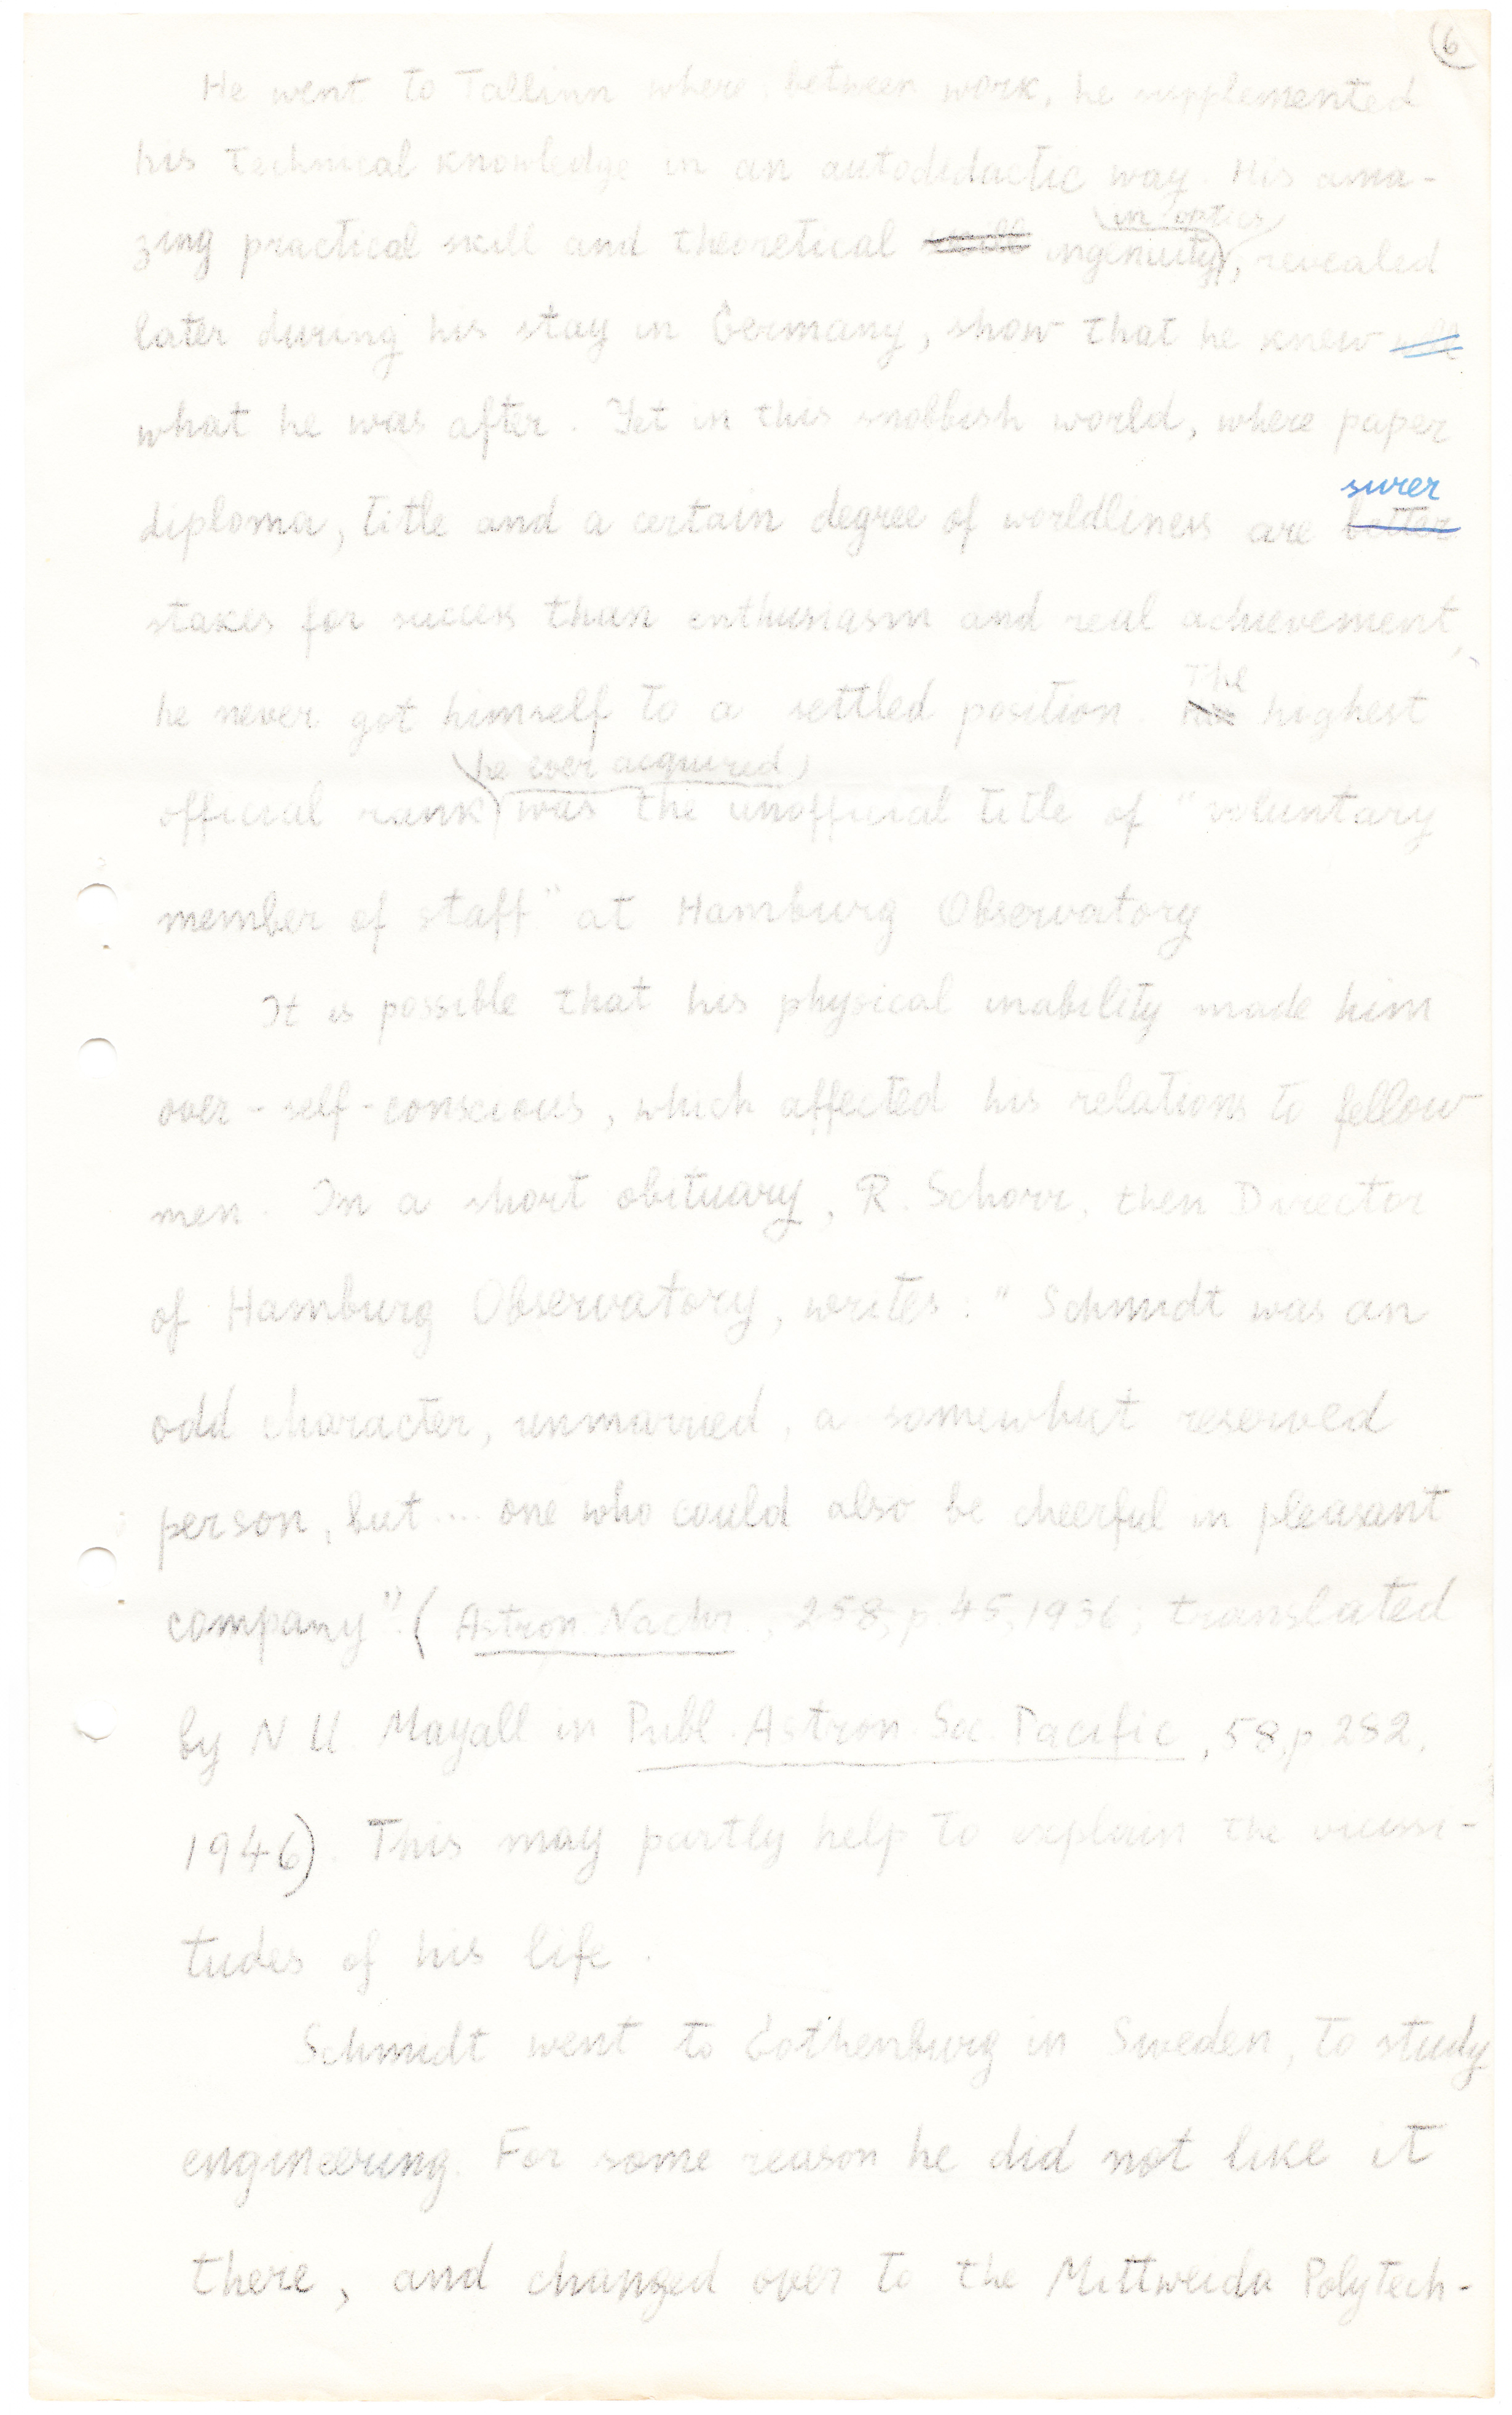 6
He went to Tallinn where, between work, he supplemented
his technical knowledge in an autodidactic way. His ama-
zing practical skill and theoretical skill ingenuity in optics, revealed
later during his stay in Germany, show that he knew well
what he was after. Yet in this snobbish world, where paper
surer
diploma, title and a certain degree of worldliness are better
stakes for success than enthusiasm and real achievement,
he never got himself to a settled position. The highest
he ever acquired
official rank was the unofficial title of "voluntary
member of staff" at Hamburg Observatory
It is possible that his physical inability made him
over-self-conscious, which affected his relations to fellow
men. In a short obituary, R. Schorr, then Director
of Hamburg Observatory, writes: "Schmidt was an
odd character, unmarried, a somewhat reserved
person, but .... one who could also be cheerful in pleasant
company". (Astron. Nachr., 258, p. 45, 1936; translated
by N U. Mayall in Publ. Astron. Soc. Pacific, 58, p. 282,
1946). This may partly help to explain the vicissi-
tudes of his life.
Schmidt went to Gothenburg in Sweden, to study
engineering. For some reason he did not like it
there, and changed over to the Mittweida Polytech-